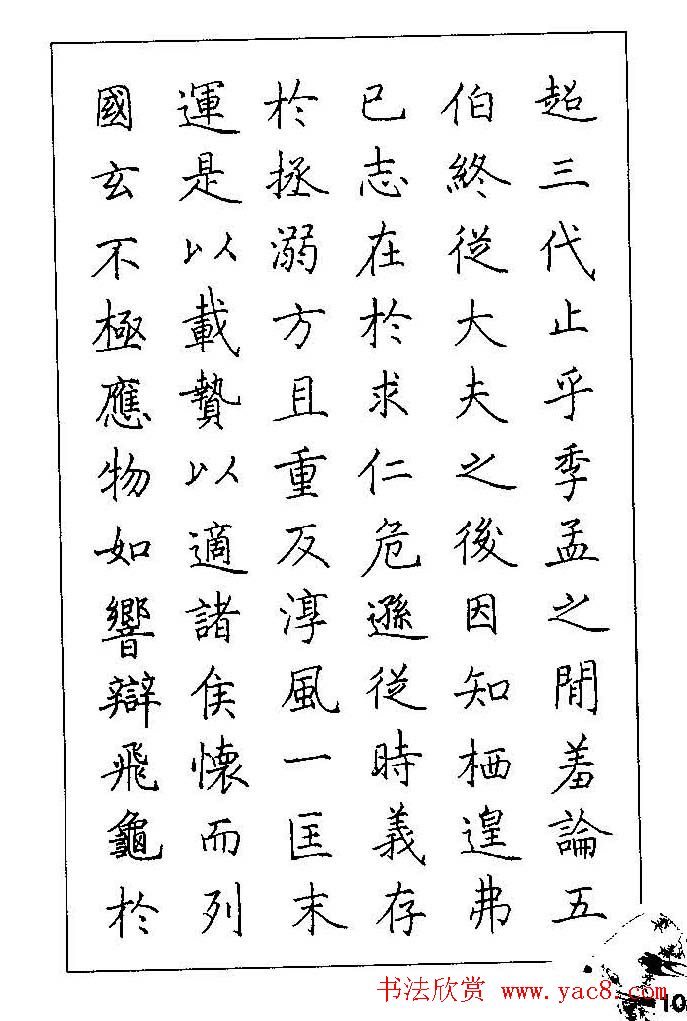 超三代止乎季孟之間羞論五
伯終從大夫之後因知栖遑弗
已志在於求仁危遜從時義存
於拯溺方且重反淳風一匡末
運是以載贄以適諸侯懷而列
國玄不極應物如響辯飛龜於
书法欣赏 www.yac8.com
10